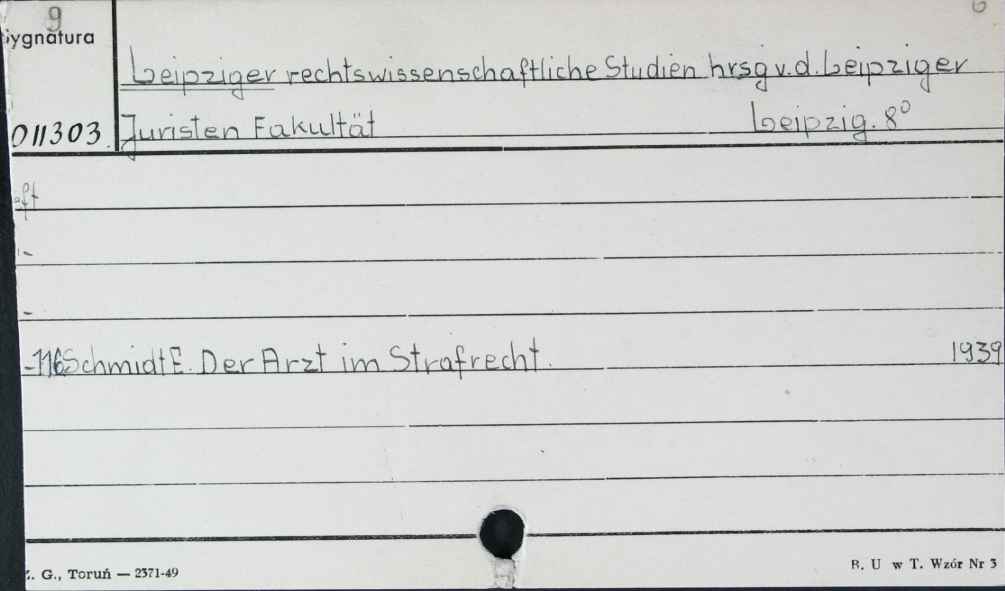 9
Sygnatura
Leipziger rechtswissenschaftliche Studien hrsg v. d. Leipziger
011303. Juristen Fakultät Leipzig. 8°
eft
-
-
-116 Schmidt E. Der Arzt im Strafrecht. 1939
Z. G., Toruń — 2371-49
B. U w T. Wzór Nr 3